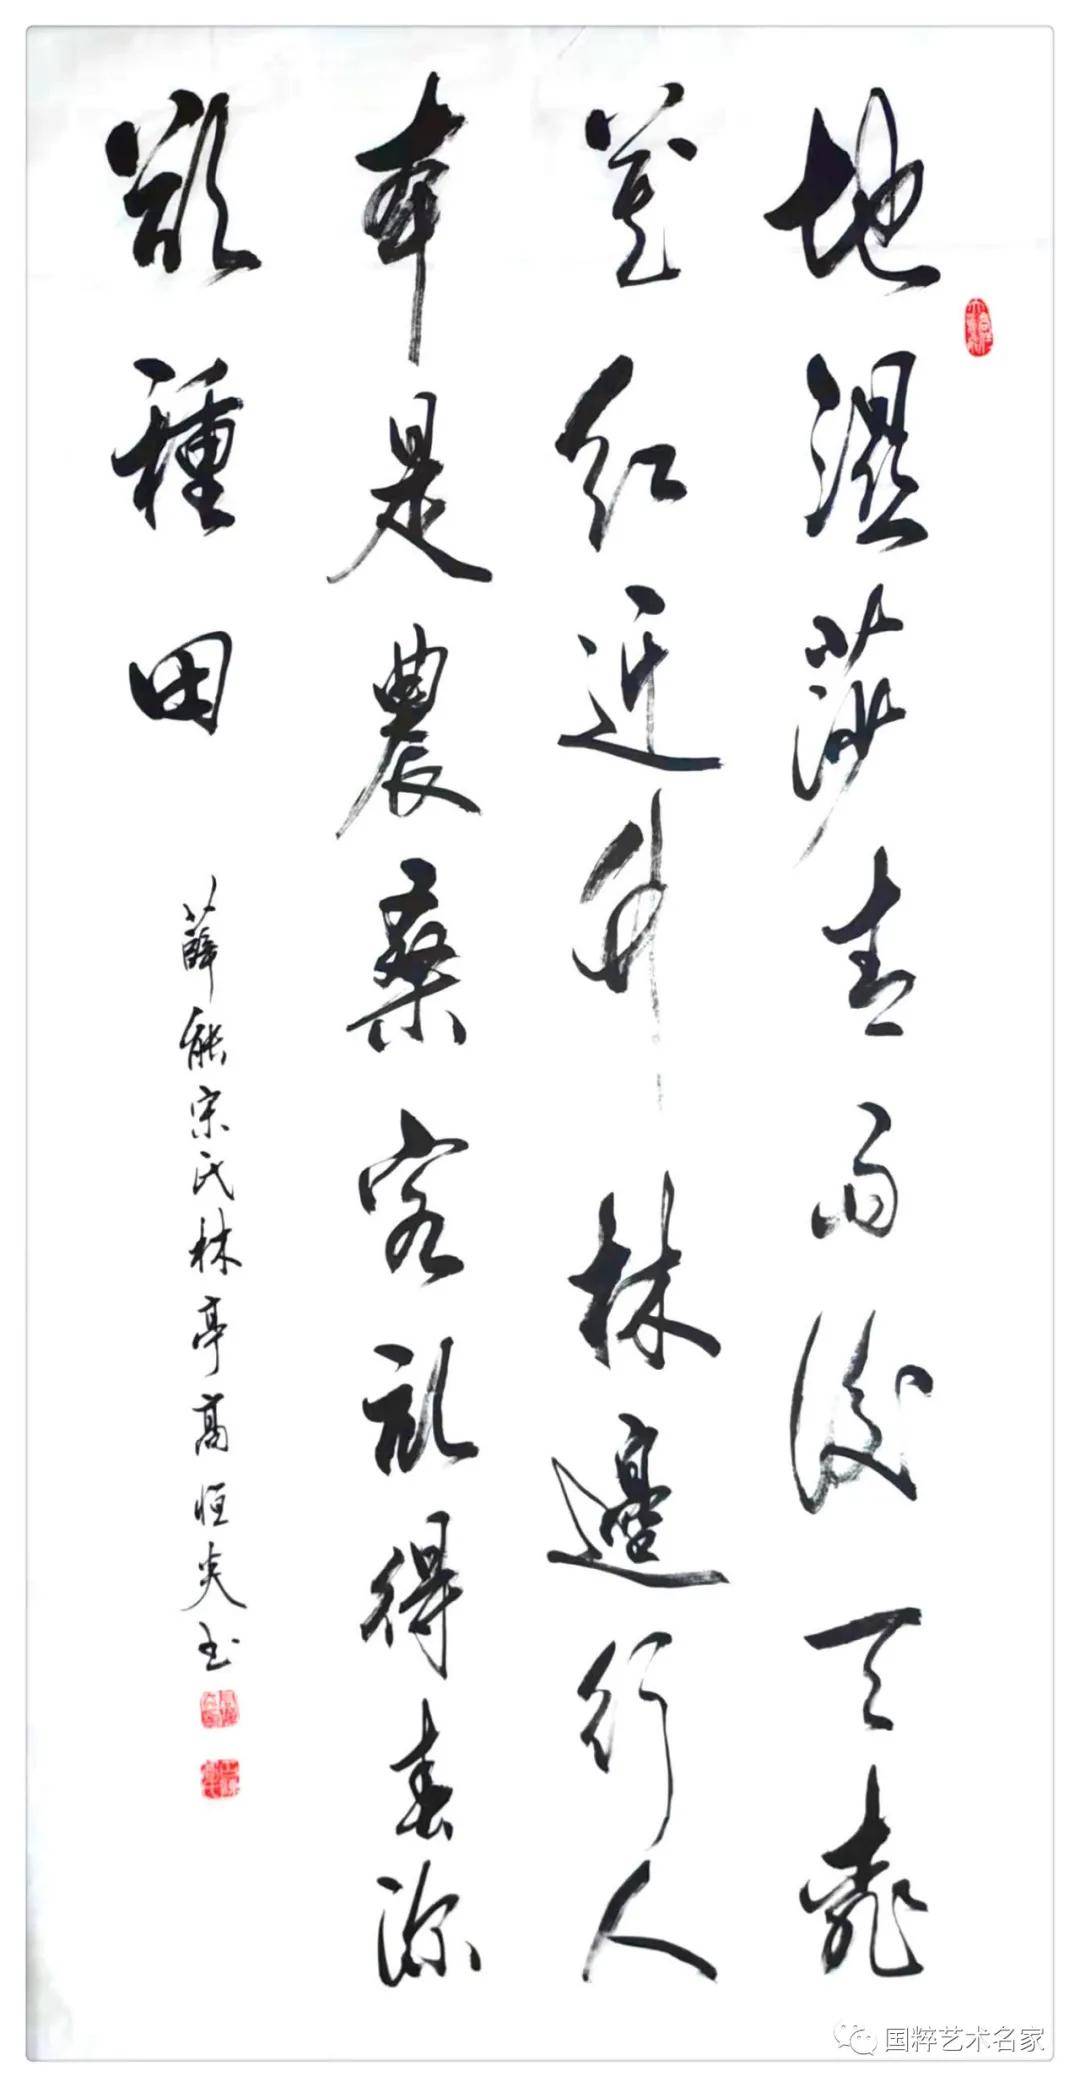 地濕莎青雨後天桃
花红近竹林邊行人
本是農桑客記得春深
欲種田
薛能宋氏林亭高恒炎书
国粹艺术名家